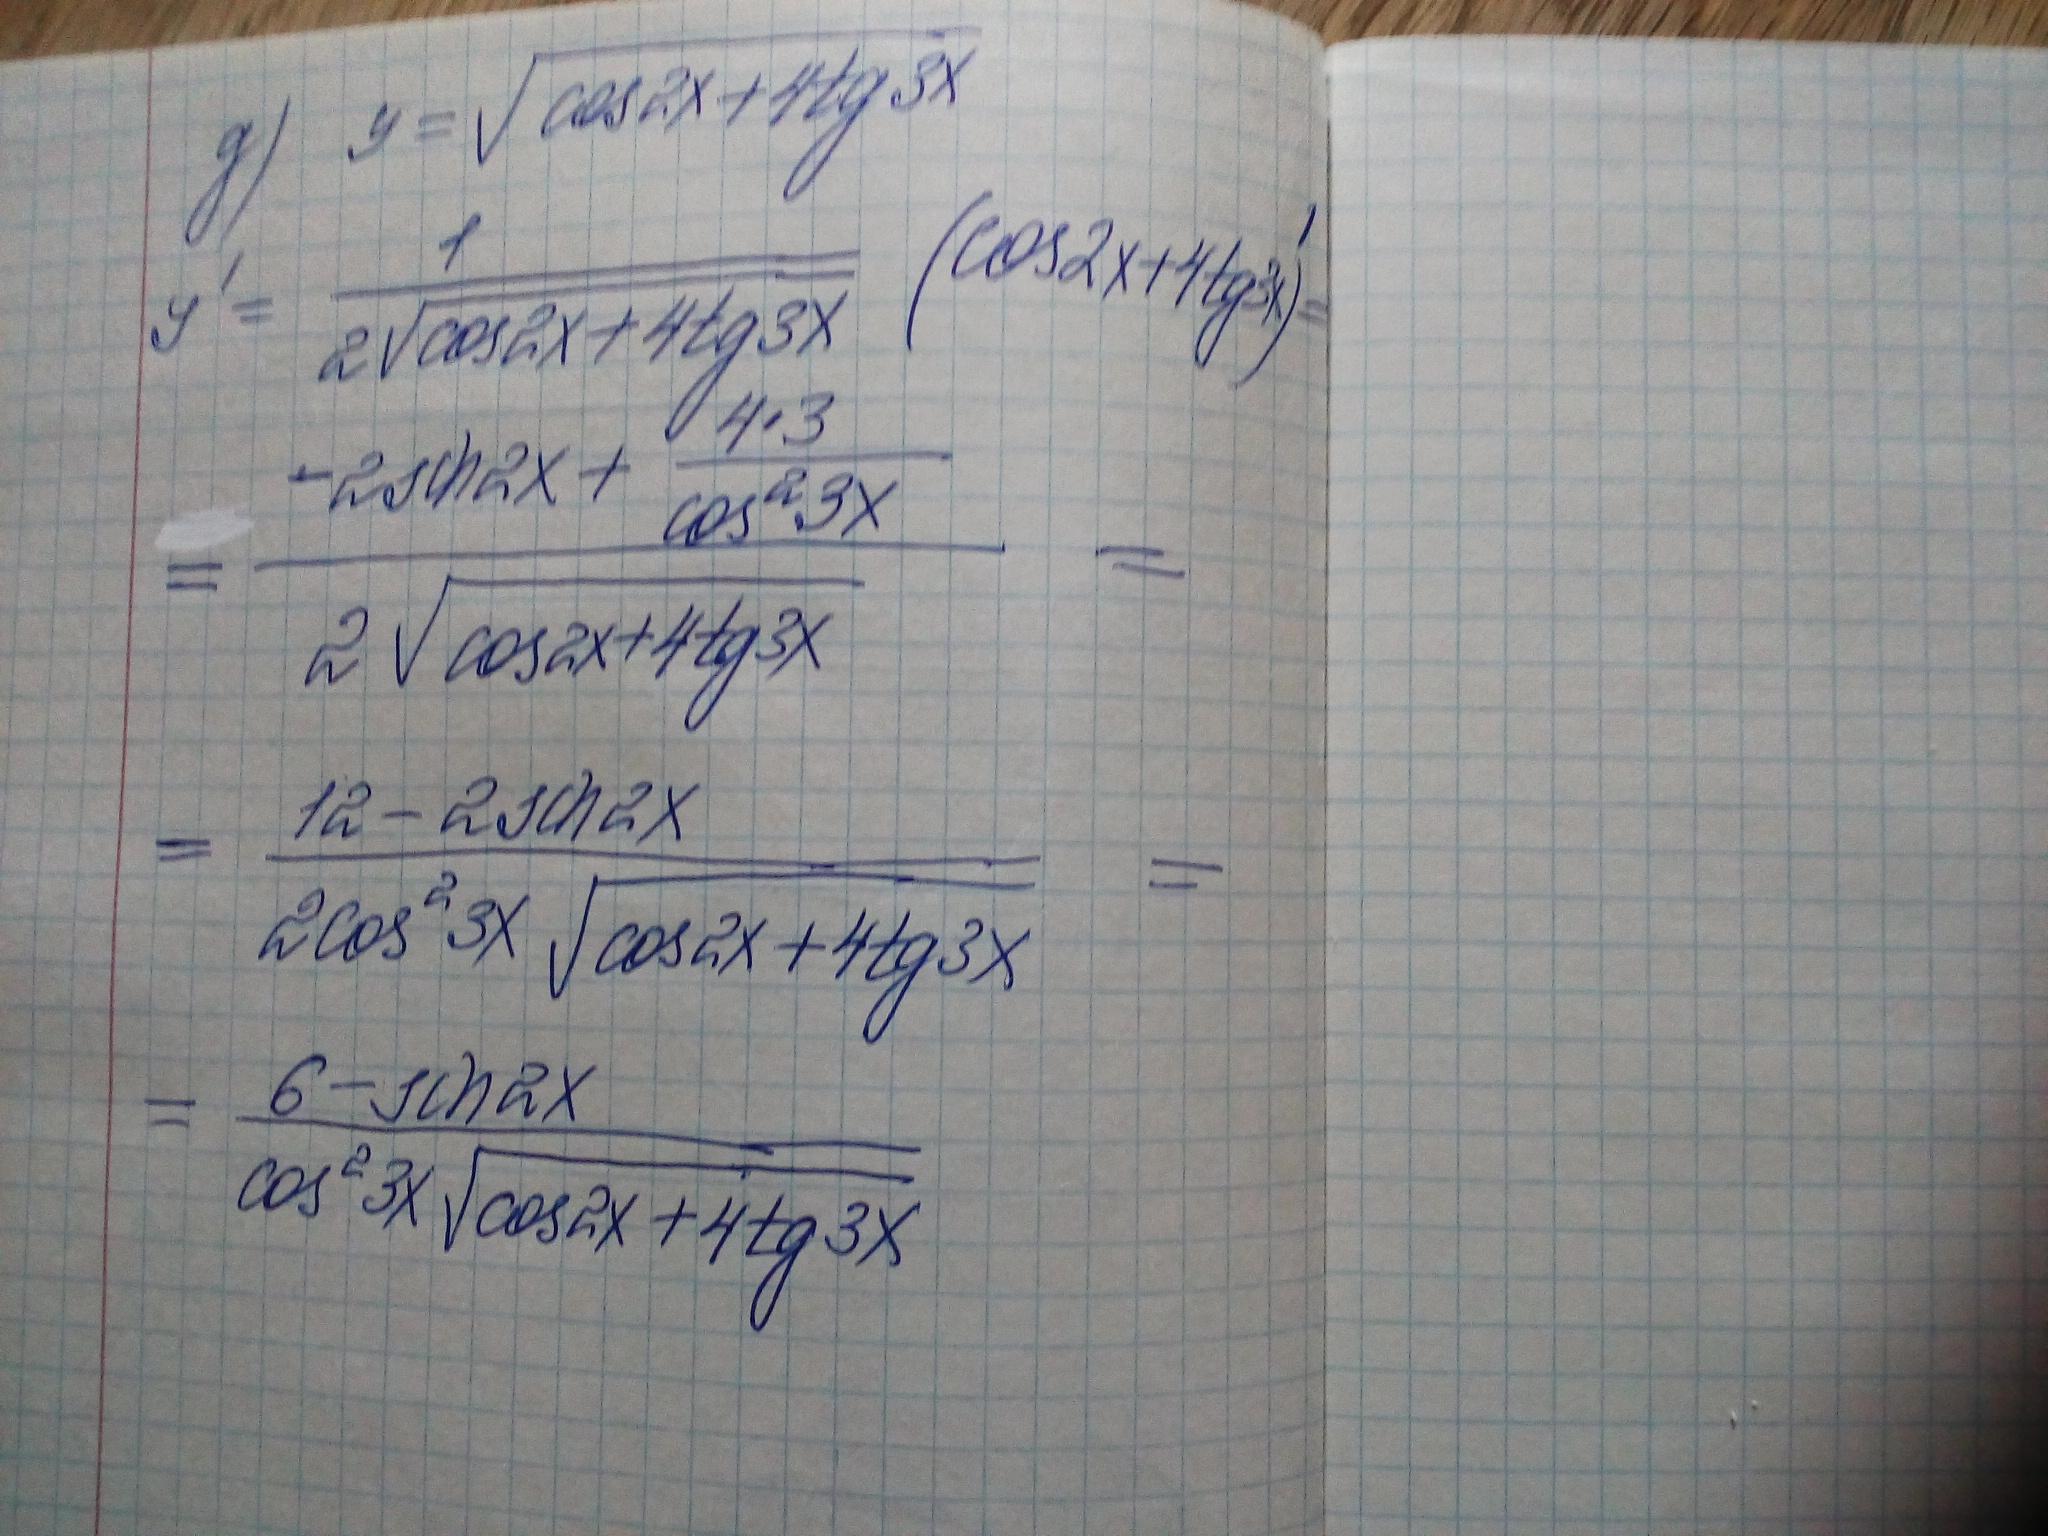 д) y = √(cos2x + 4tg3x)
y' = 1 / (2√(cos2x + 4tg3x)) (cos2x + 4tg3x)' =
= (-2sin2x + (4·3) / (cos²3x)) / (2√(cos2x + 4tg3x)) =
= (12 - 2sin2x) / (2cos²3x √(cos2x + 4tg3x)) =
= (6 - sin2x) / (cos²3x √(cos2x + 4tg3x))